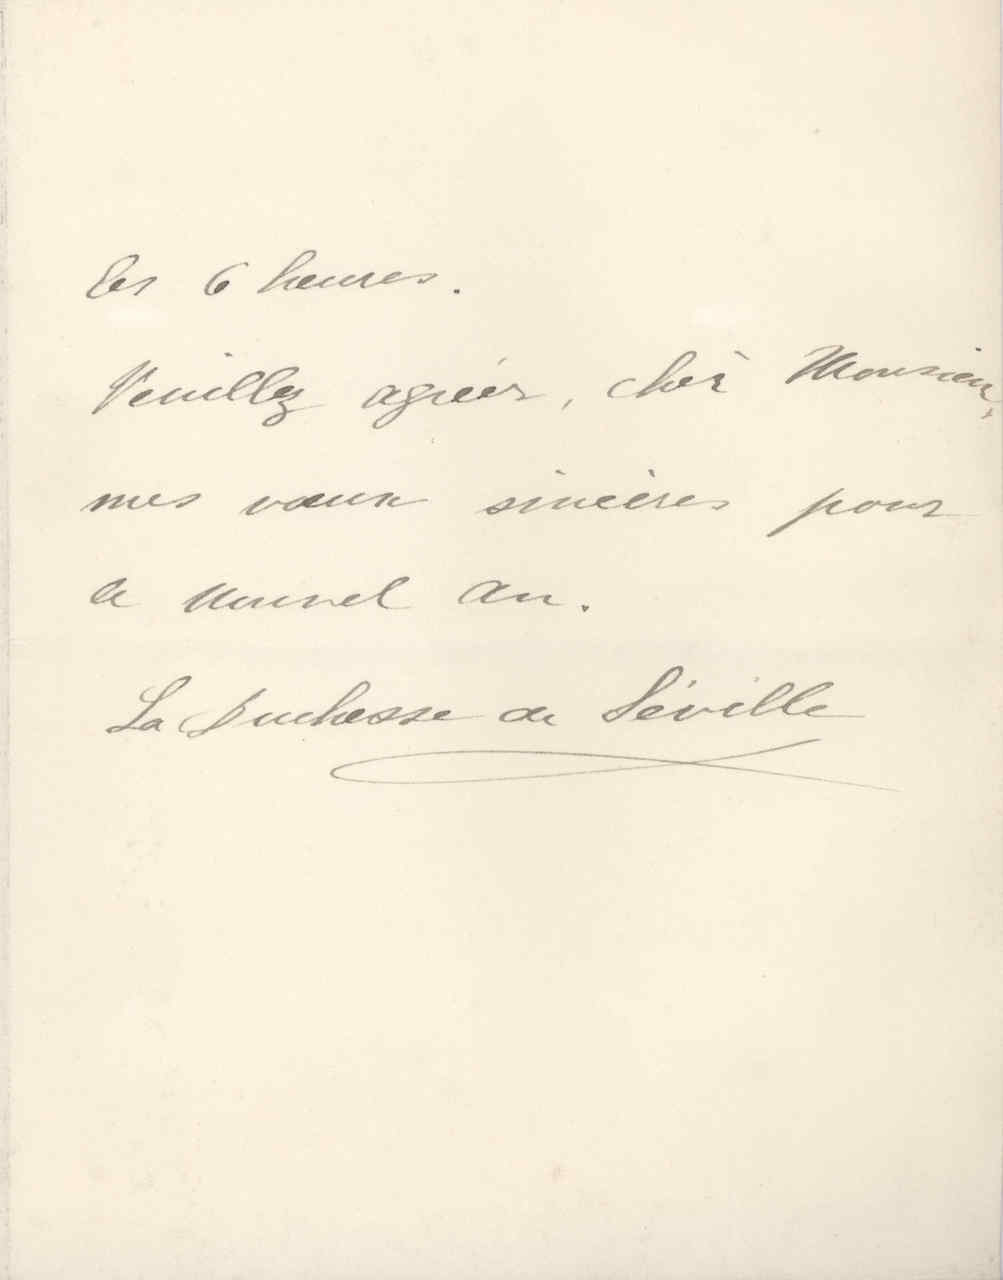 les 6 heures.
Veuillez agréer, cher Monsieur,
mes vœux sincères pour
le nouvel an.
La Duchesse de Séville